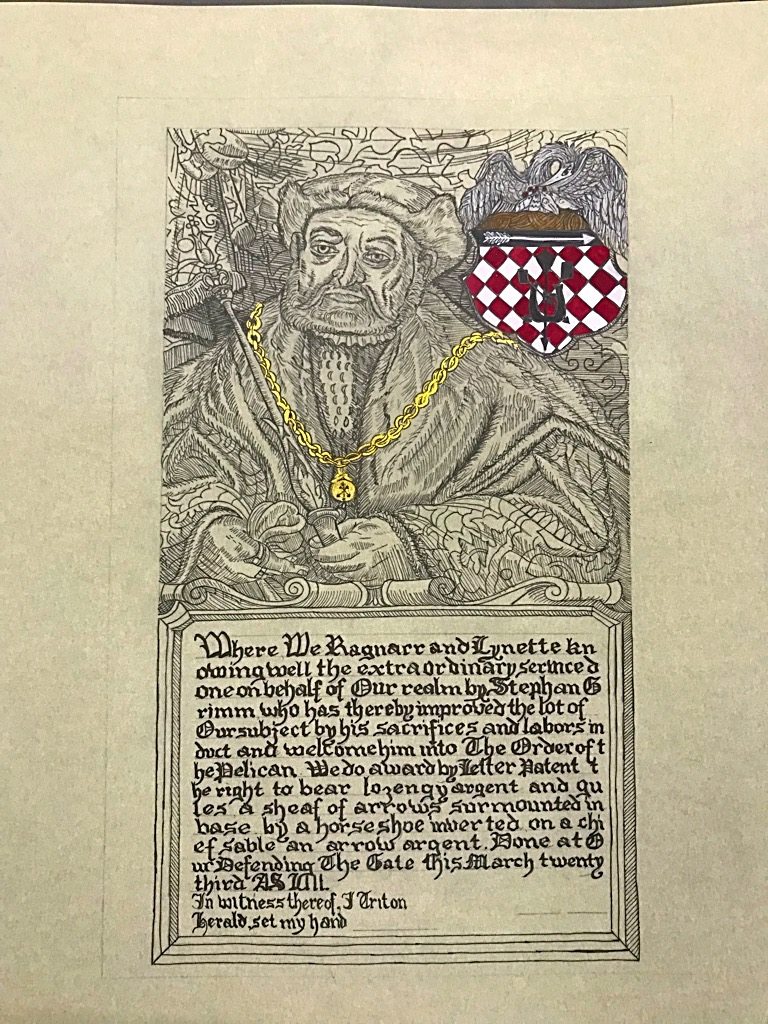 Where We Ragnarr and Lynette kn
owing well the extraordinary serviced
one on behalf of Our realm by Stephan G
rimm who has thereby improved the lot of
Our subject by his sacrifices and labors in
duct and welcome him into The Order of t
he Pelican. We do award by Letter Patent t
he right to bear lozengy argent and gu
les a sheaf of arrows surmounted in
base by a horseshoe inverted on a chi
ef sable an arrow argent. Done at O
ur Defending The Gate this March twenty
third AS LIII.
In witness thereof, I Triton
Herald, set my hand